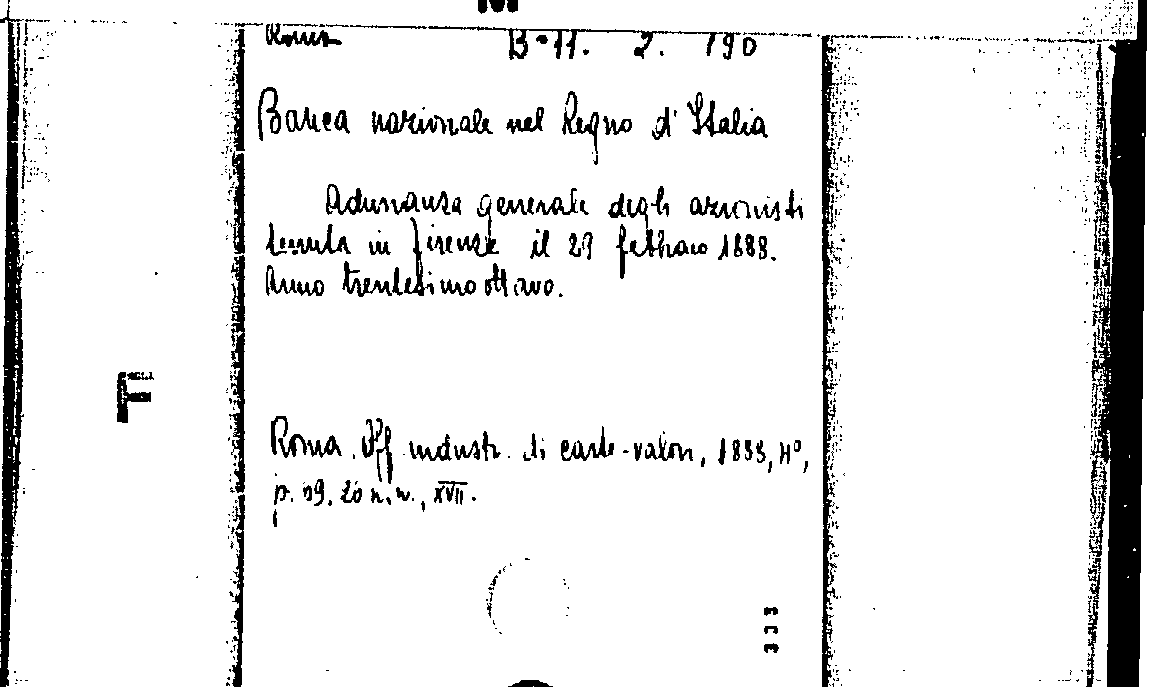 Roma B-11. 2. 190
Banca nazionale nel Regno d'Italia
Adunanza generale degli azionisti
tenuta in Firenze il 29 febbraio 1888.
Anno trentesimottavo.
F
Roma. Off. industr. di carte-valori, 1888, 4°,
p. 59, 20 n.n., XVII.